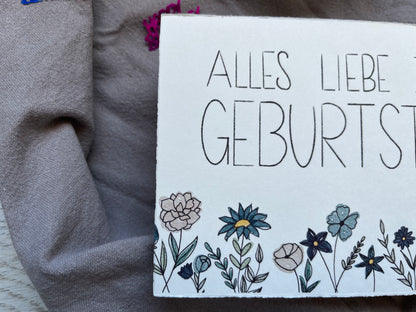 ALLES LIEBE
GEBURTST